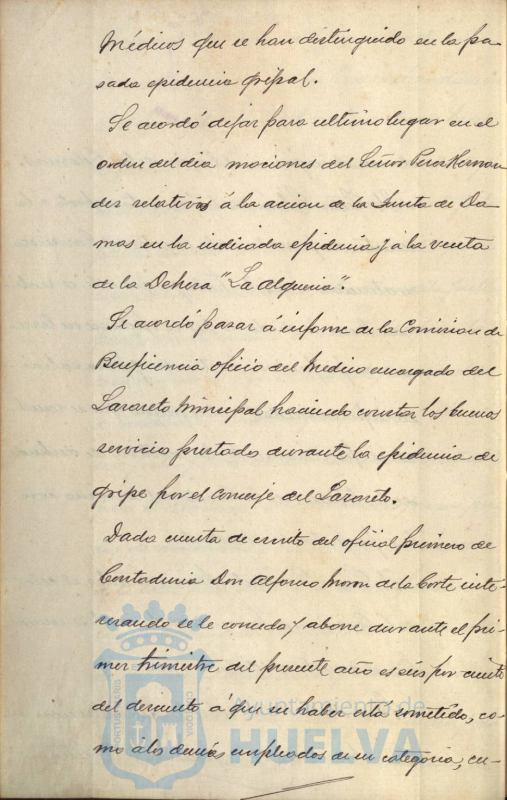 Médicos que se han distinguido en la pa-
sada epidemia gripal.
Se acordó dejar para ultimo lugar en el
orden del dia mociones del Señor Perez Hernan
dez relativas á la accion de la Junta de Da
mas en la indicada epidemia y á la venta
de la Dehesa "La Alqueria".
Se acordó pasar á informe de la Comision de
Beneficencia oficio del Medico encargado del
Lazareto Municipal haciendo constar los buenos
servicio prestados durante la epidemia de
gripe por el Conserje del Lazareto.
Dada cuenta de escrito del oficial primero de
Contaduria Don Alfonso Moron de la Corte inte-
resando se le conceda y abone durante el pri-
mer trimestre del presente año el seis por ciento
del descuento á que su haber esta sometido, co-
mo á los demás empleados de su categoria, cu-
Ayuntamiento de
HUELVA